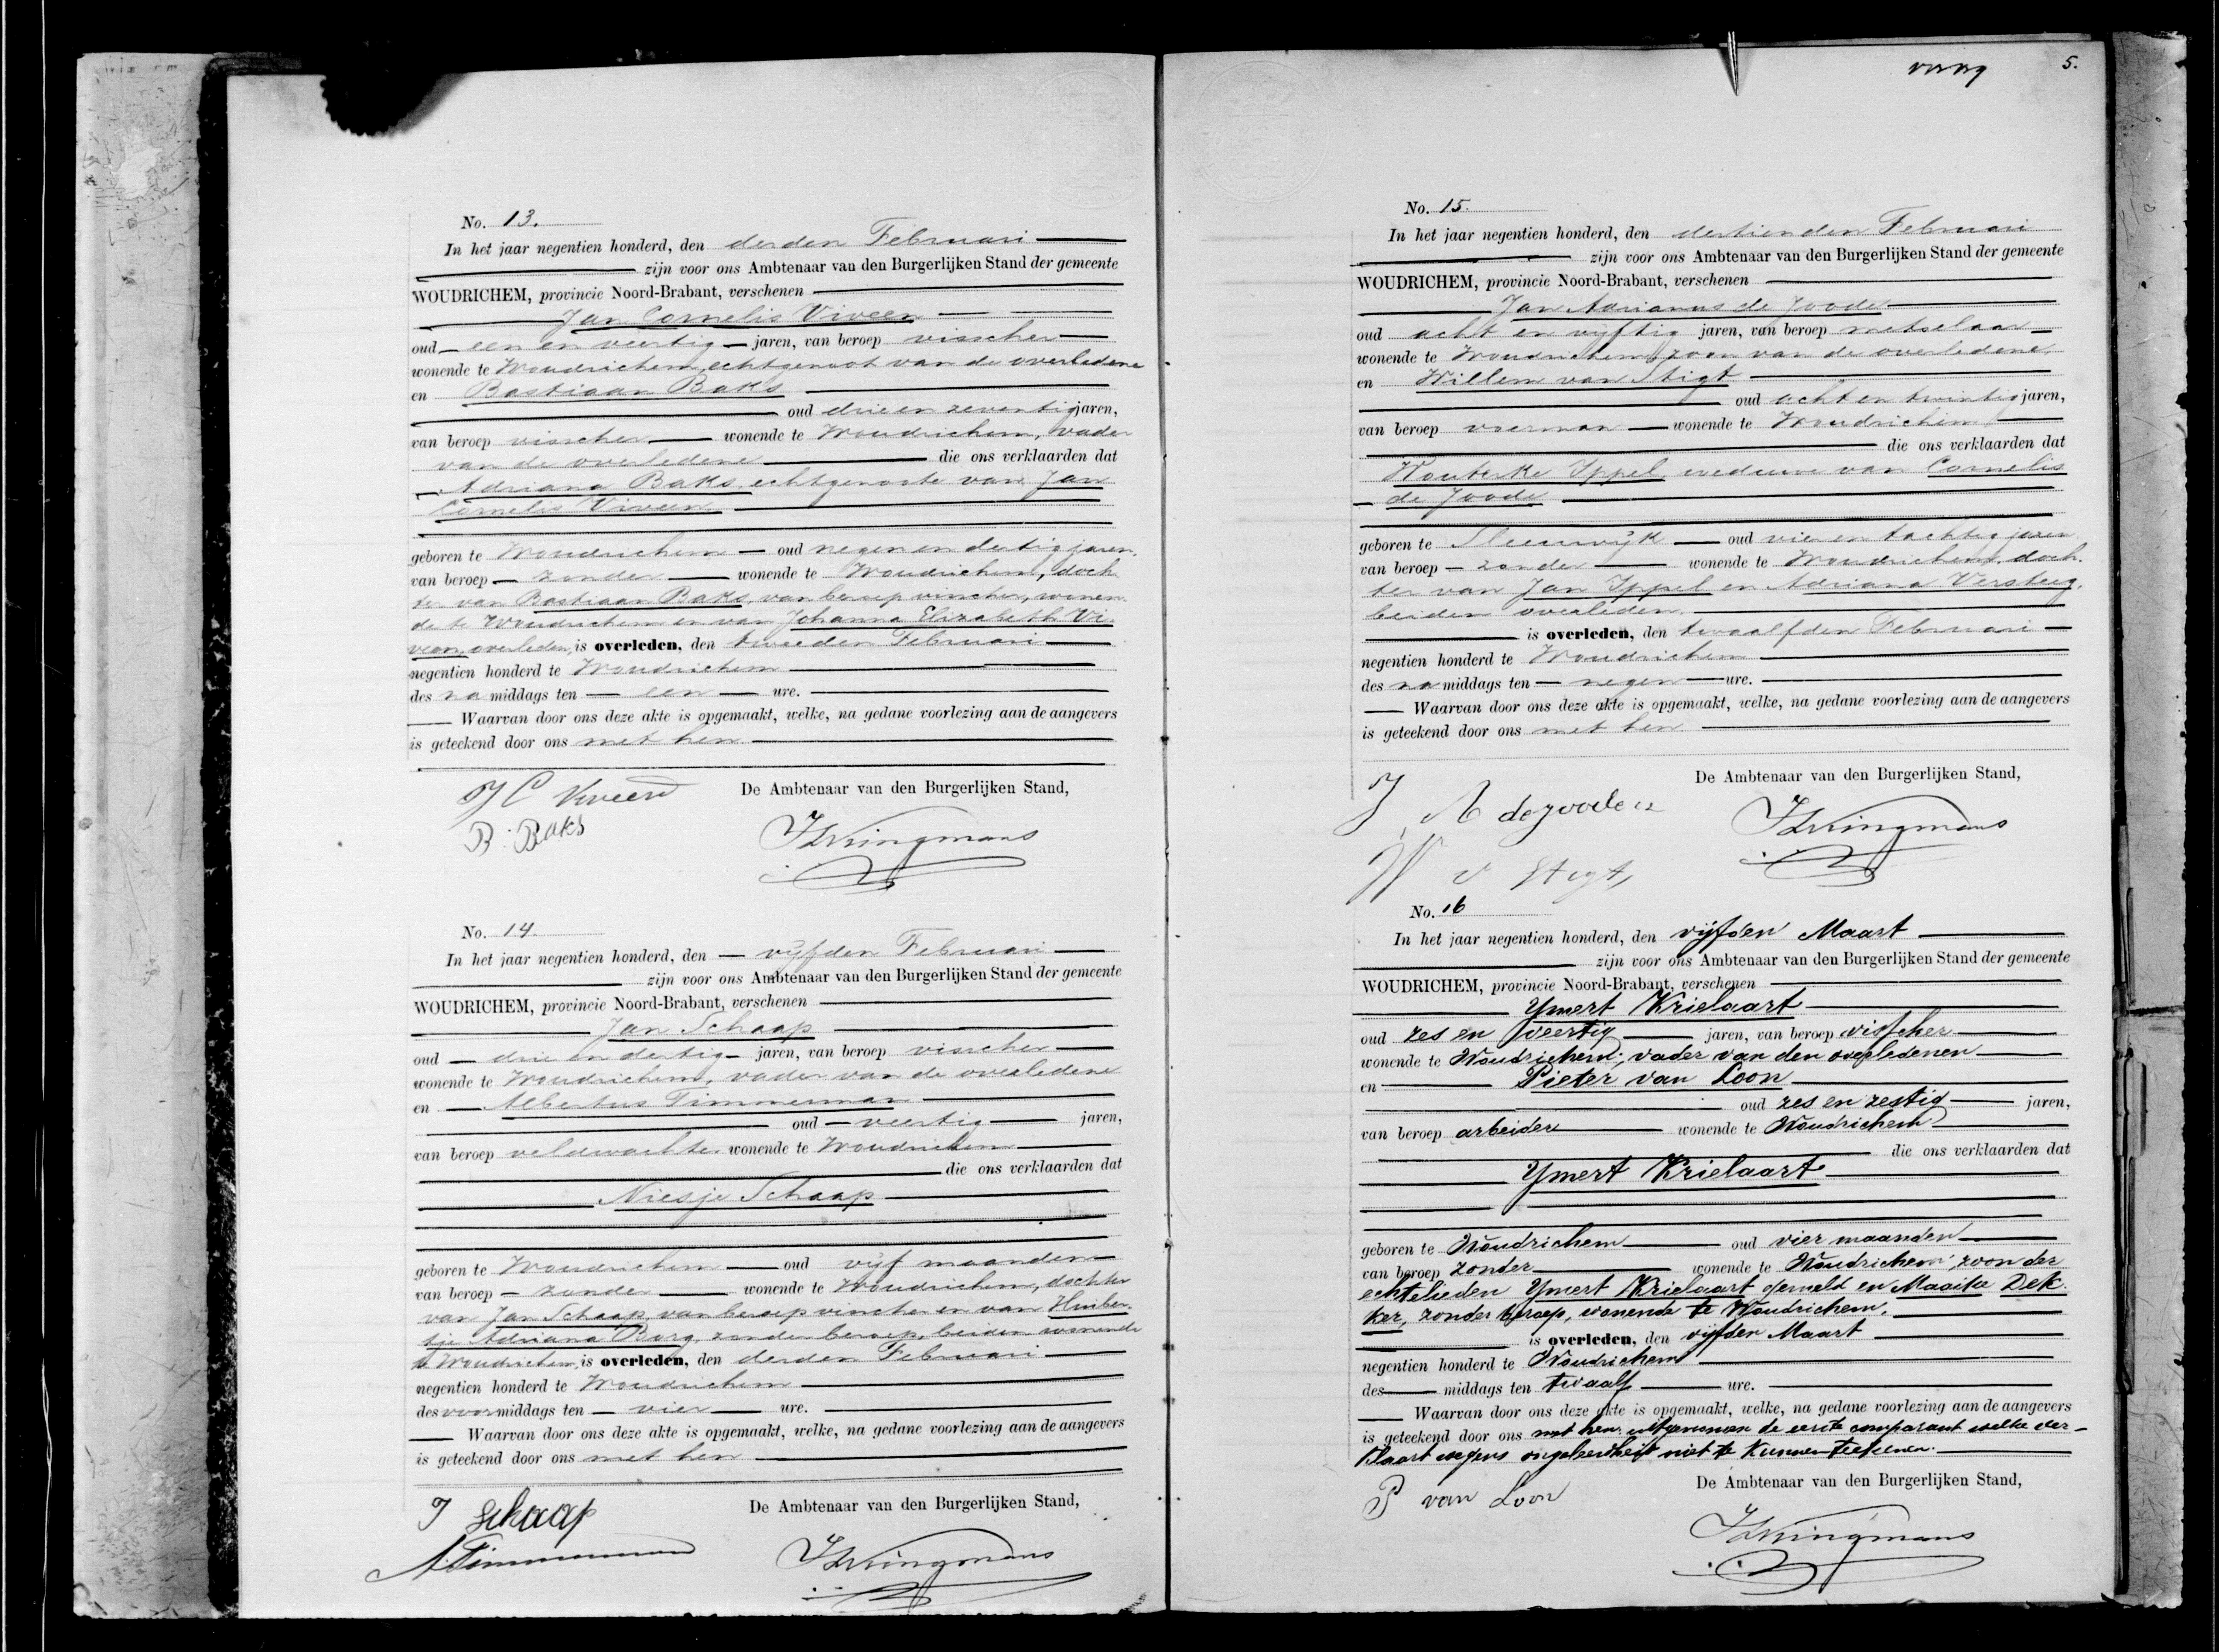 No. 13.
In het jaar negentien honderd, den derden Februari
zijn voor ons Ambtenaar van den Burgerlijken Stand der gemeente
WOUDRICHEM, provincie Noord-Brabant, verschenen
Jan Cornelis Viveen
oud een en veertig jaren, van beroep visscher
wonende te Woudrichem, echtgenoot van de overledene
en Bastiaan Baks
oud drie en zeventig jaren,
van beroep visscher wonende te Woudrichem, vader
van de overledene die ons verklaarden dat
Adriana Baks, echtgenoote van Jan
Cornelis Viveen
geboren te Woudrichem oud negen en dertig jaren,
van beroep zonder wonende te Woudrichem, doch
ter van Bastiaan Baks, van beroep visscher, wonen
de te Woudrichem en van Johanna Elizabeth Vi
veen, overleden, is overleden, den tweeden Februari
negentien honderd te Woudrichem
des na middags ten een ure.
Waarvan door ons deze akte is opgemaakt, welke, na gedane voorlezing aan de aangevers
is geteekend door ons met hen
J C Viveen De Ambtenaar van den Burgerlijken Stand,
B. Baks
No. 14.
In het jaar negentien honderd, den vijfden Februari
zijn voor ons Ambtenaar van den Burgerlijken Stand der gemeente
WOUDRICHEM, provincie Noord-Brabant, verschenen
Jan Schaap
oud drie en dertig jaren, van beroep visscher
wonende te Woudrichem, vader van de overledene
en Albertus Timmerman
oud veertig jaren,
van beroep veldwachter wonende te Woudrichem
die ons verklaarden dat
Niesje Schaap
geboren te Woudrichem oud vijf maanden
van beroep zonder wonende te Woudrichem, dochter
van Jan Schaap, van beroep visscher en van Huiber
tje Adriana Borg, zonder beroep, beiden wonende
te Woudrichem, is overleden, den derden Februari
negentien honderd te Woudrichem
des voormiddags ten vier ure.
Waarvan door ons deze akte is opgemaakt, welke, na gedane voorlezing aan de aangevers
is geteekend door ons met hen
J Schaap De Ambtenaar van den Burgerlijken Stand,
A Timmerman
5.
No. 15.
In het jaar negentien honderd, den dertienden Februari
zijn voor ons Ambtenaar van den Burgerlijken Stand der gemeente
WOUDRICHEM, provincie Noord-Brabant, verschenen
Jan Adrianus de Joode
oud acht en vijftig jaren, van beroep metselaar
wonende te Woudrichem, zoon van de overledene,
en Willem van Stigt
oud acht en twintig jaren,
van beroep voerman wonende te Woudrichem
die ons verklaarden dat
Wouterke Ippel weduwe van Cornelis
de Joode
geboren te Sleeuwijk oud vier en tachtig jaren
van beroep zonder wonende te Woudrichem, doch
ter van Jan Ippel en Adriana Versteeg,
beiden overleden
is overleden, den twaalfden Februari
negentien honderd te Woudrichem
des na middags ten negen ure.
Waarvan door ons deze akte is opgemaakt, welke, na gedane voorlezing aan de aangevers
is geteekend door ons met hen
De Ambtenaar van den Burgerlijken Stand,
J. A de Joode
W v Stigt
No. 16
In het jaar negentien honderd, den vijfden Maart
zijn voor ons Ambtenaar van den Burgerlijken Stand der gemeente
WOUDRICHEM, provincie Noord-Brabant, verschenen
Ymert Krielaart
oud zes en veertig jaren, van beroep visscher
wonende te Woudrichem, vader van den overledenen
en Pieter van Loon
oud zes en zestig jaren,
van beroep arbeider wonende te Woudrichem
die ons verklaarden dat
Ymert Krielaart
geboren te Woudrichem oud vier maanden
van beroep zonder wonende te Woudrichem, zoon der
echtelieden Ymert Krielaart gemeld en Maaike Dek
ker, zonder beroep, wonende te Woudrichem,
is overleden, den vijfden Maart
negentien honderd te Woudrichem
des middags ten twaalf ure.
Waarvan door ons deze akte is opgemaakt, welke, na gedane voorlezing aan de aangevers
is geteekend door ons met hen uitgenomen de eerste comparant welke ver-
klaart wegens ongeleerdheid niet te kunnen teekenen.
De Ambtenaar van den Burgerlijken Stand,
P van Loon